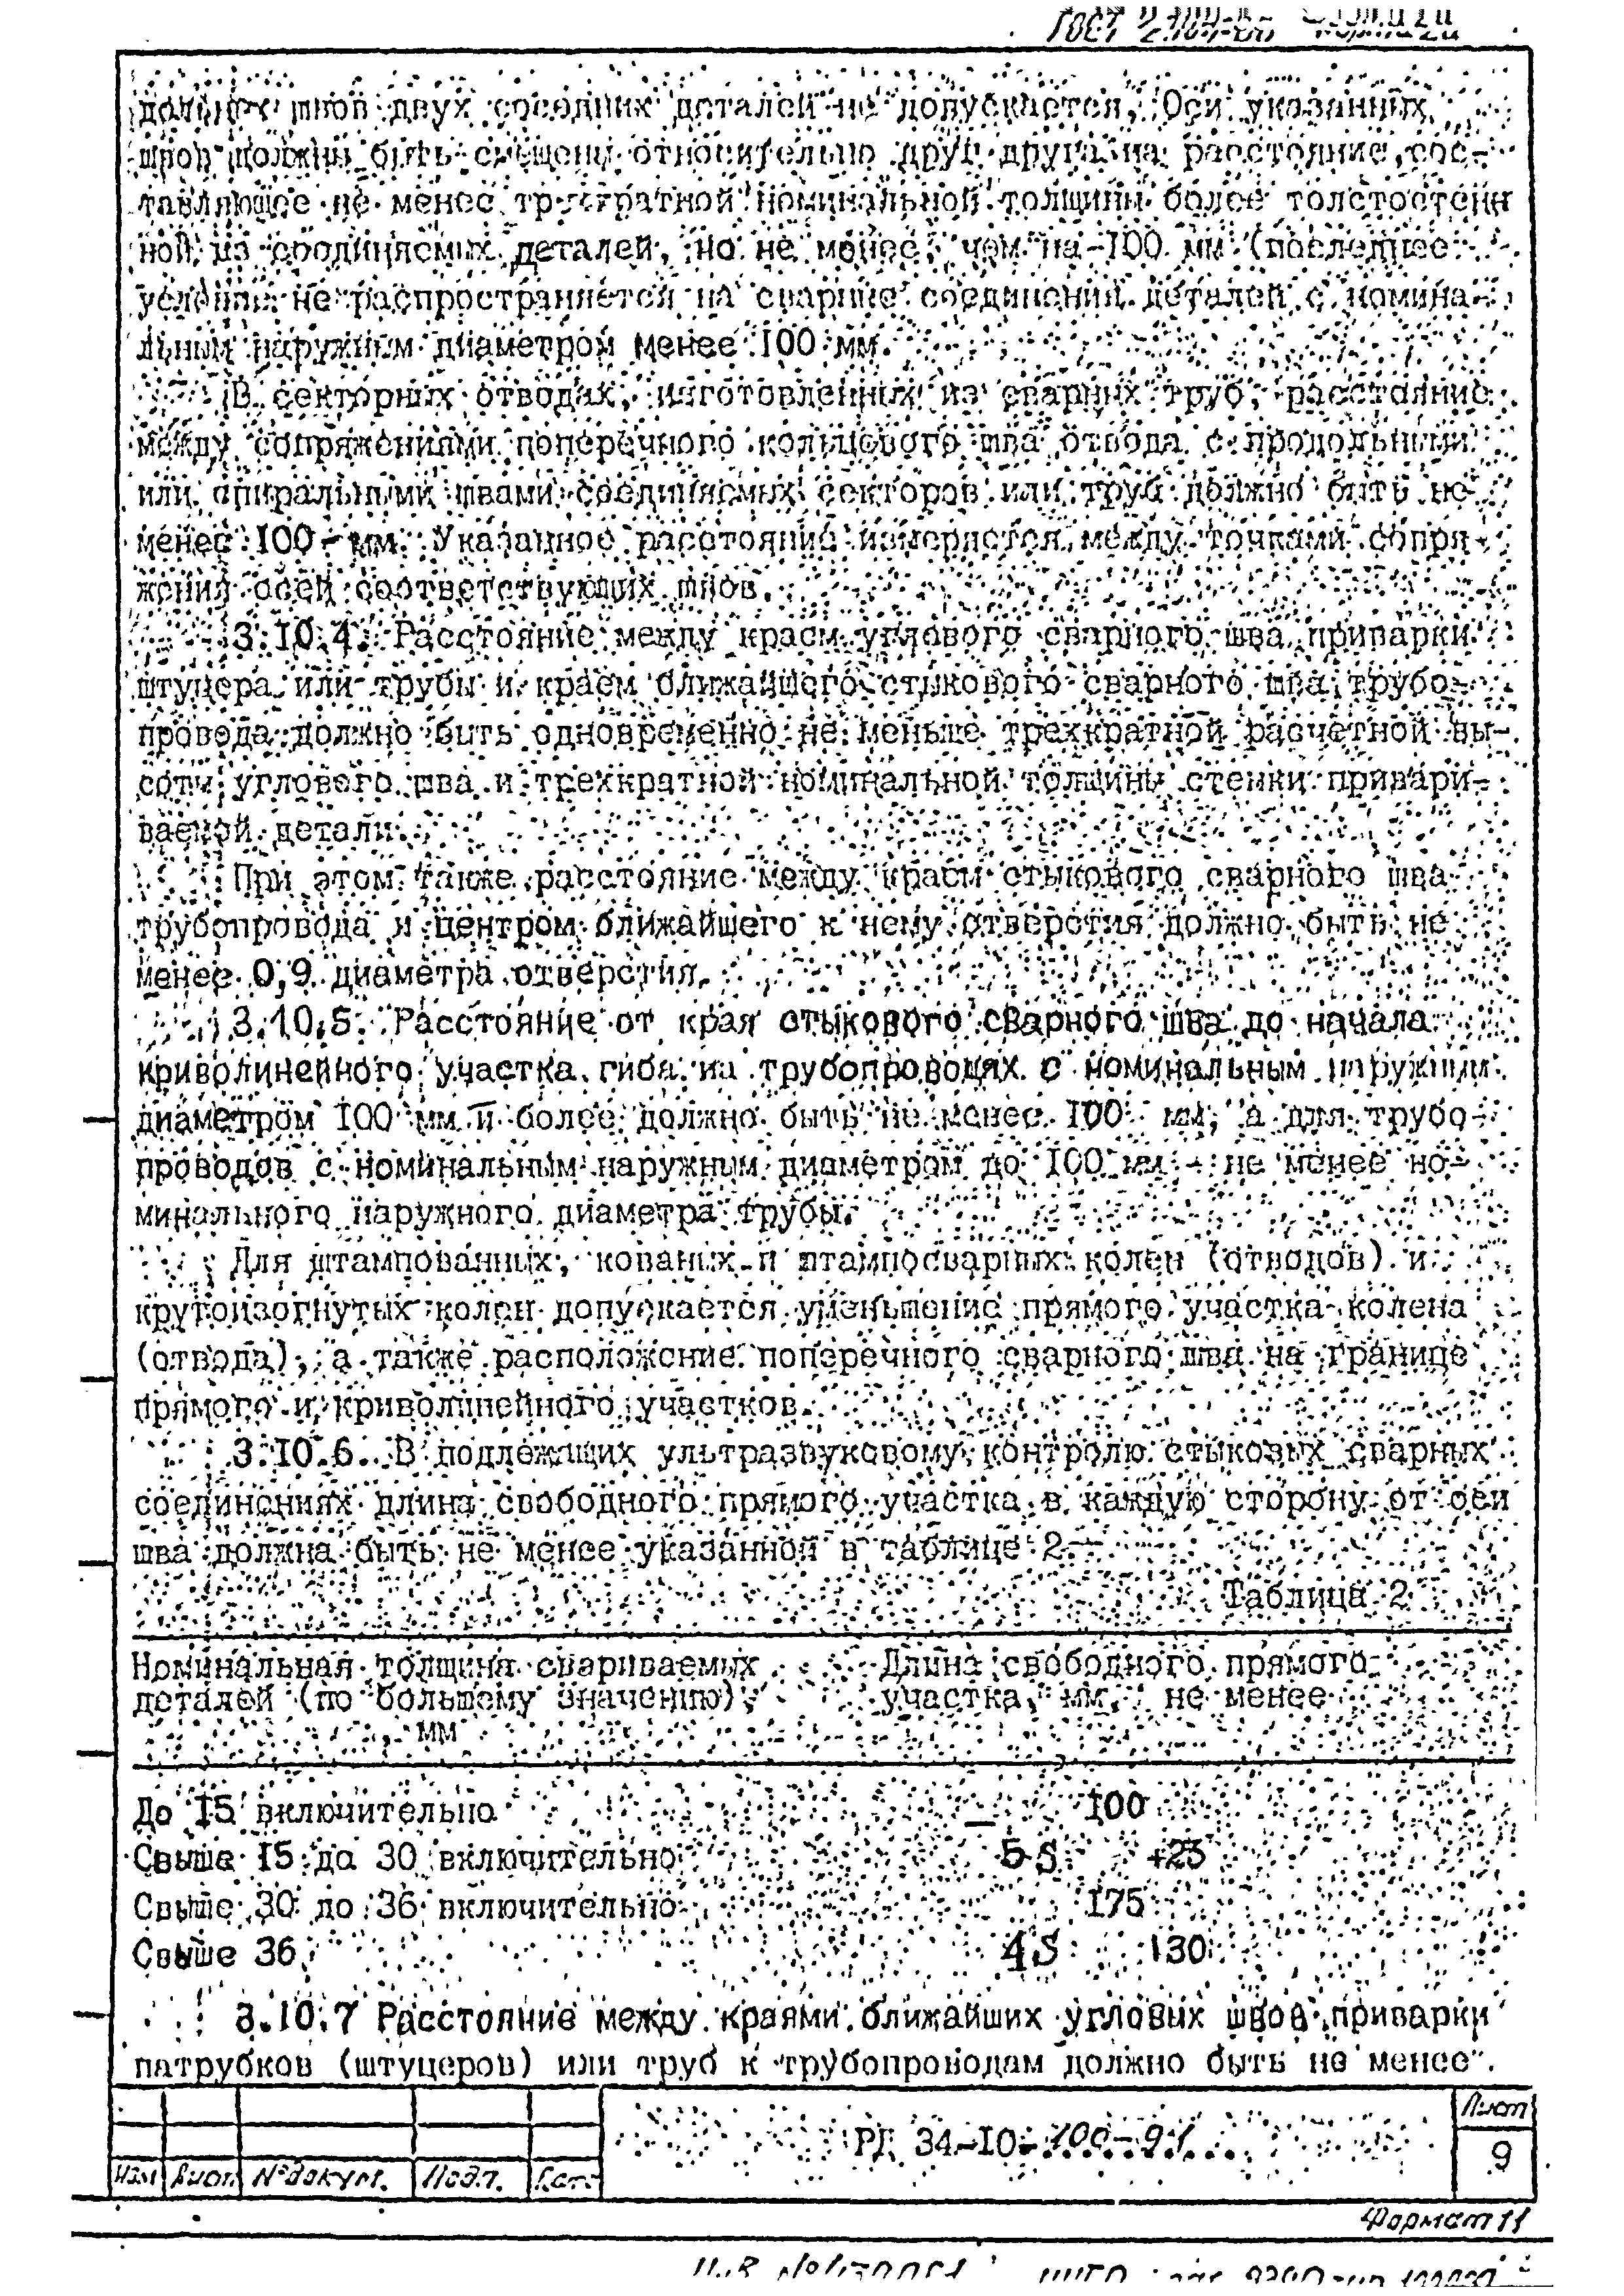 дольных швов двух соседних деталей не допускается. Оси указанных
швов должны быть смещены относительно друг друга на расстояние, сос-
тавляющее не менее трехкратной номинальной толщины более толстостенн
ной из соединяемых деталей, но не менее, чем на 100 мм (последнее
условие не распространяется на сварные соединения деталей с номина-
льным наружным диаметром менее 100 мм.
В секторных отводах, изготовленных из сварных труб, расстояние
между сопряжениями поперечного кольцевого шва отвода с продольными
или спиральными швами соединяемых секторов или труб должно быть не
менее 100 мм. Указанное расстояние измеряется между точками сопря-
жения осей соответствующих швов.
3.10.4. Расстояние между краем углового сварного шва приварки
штуцера или трубы и краем ближайшего стыкового сварного шва трубо-
провода должно быть одновременно не меньше трехкратной расчетной вы-
соты углового шва и трехкратной номинальной толщины стенки привари-
ваемой детали.
При этом также расстояние между краем стыкового сварного шва
трубопровода и центром ближайшего к нему отверстия должно быть не
менее 0,9 диаметра отверстия.
3.10.5. Расстояние от края стыкового сварного шва до начала
криволинейного участка гиба на трубопроводях с номинальным наружным
диаметром 100 мм и более должно быть не менее 100 мм, а для трубо-
проводов с номинальным наружным диаметром до 100 мм - не менее но-
минального наружного диаметра трубы.
Для штампованных, кованых и штампосварных колен (отводов) и
крутоизогнутых колен допускается уменьшение прямого участка колена
(отвода), а также расположение поперечного сварного шва на границе
прямого и криволинейного участков.
3.10.6. В подлежащих ультразвуковому контролю стыковых сварных
соединениях длина свободного прямого участка в каждую сторону от оси
шва должна быть не менее указанной в таблице 2.
Таблица 2
Номинальная толщина свариваемых Длина свободного прямого
деталей (по большему значению), участка, мм, не менее
мм
До 15 включительно 100
Свыше 15 до 30 включительно 5S +25
Свыше 30 до 36 включительно 175
Свыше 36 4S +30
3.10.7 Расстояние между краями ближайших угловых швов приварки
патрубков (штуцеров) или труб к трубопроводам должно быть не менее
Лист
РД 34-10-100-91
9
Изм Лист № докум. Подп.
Формат 11